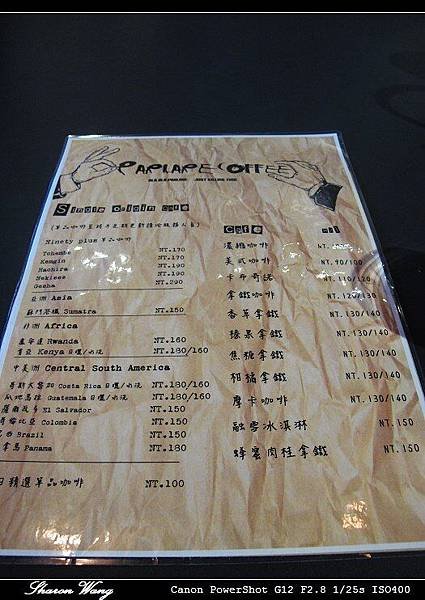 PARLARE COFFEE
Single origin café
Ninety plus 單品咖啡
Tchembe NT.170
Kemgin NT.190
Hachira NT.190
Nekisse NT.190
Gesha NT.290
亞洲 Asia
蘇門答臘 Sumatra NT.150
非洲 Africa
盧安達 Rwanda NT.160
肯亞 Kenya 日曬/水洗 NT.180/160
中美洲 Central South America
哥斯大黎加 Costa Rica 日曬/水洗 NT.180/160
瓜地馬拉 Guatemala 日曬/水洗 NT.180/160
薩爾瓦多 El Salvador NT.150
哥倫比亞 Colombia NT.150
巴西 Brazil NT.150
拿馬 Panama NT.180
日精選單品咖啡 NT.100
Café
濃縮咖啡
美式咖啡 NT.90/100
卡布奇諾 NT.110/120
拿鐵咖啡 NT.120/130
香草拿鐵 NT.130/140
榛果拿鐵 NT.130/140
焦糖拿鐵 NT.130/140
柑橘拿鐵 NT.130/140
摩卡咖啡 NT.130/140
融雪冰淇淋 NT.150
蜂蜜肉桂拿鐵 NT.150
Sharon Wang
Canon PowerShot G12 F2.8 1/25s ISO400